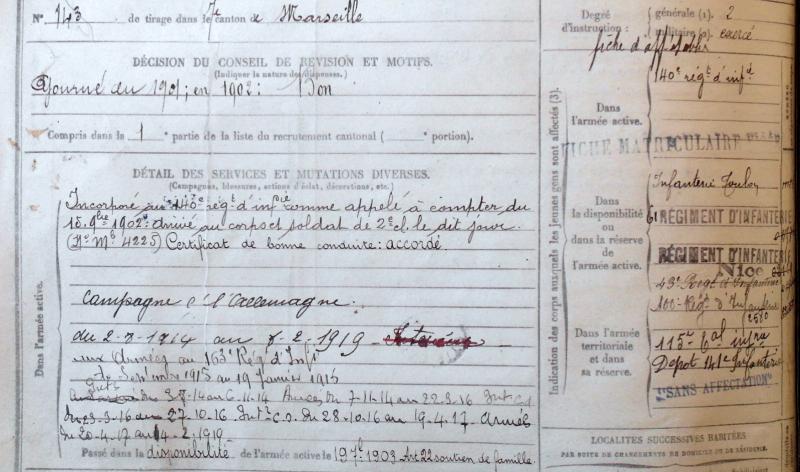 N° 143 de tirage dans le 7e canton de Marseille
DÉCISION DU CONSEIL DE REVISION ET MOTIFS.
(Indiquer la nature des dispenses.)
Ajourné du 1901; en 1902: Bon
Compris dans la 1e partie de la liste du recrutement cantonal ( e portion).
DÉTAIL DES SERVICES ET MUTATIONS DIVERSES.
(Campagnes, blessures, actions d'éclat, décorations, etc.)
Dans l'armée active.
Incorporé au 140e régt d'infie comme appelé à compter du
15 9bre 1902: arrivé au corps et soldat de 2e cl. le dit jour.
(No Mle 4225) Certificat de bonne conduite: accordé.
Campagne c/ l'Allemagne:
du 2-8-1914 au 2-1919
aux Armées au 163e Rég d'Inf
Septembre 1915 au 19 Janvier 1915
du 3-8-14 au 6-11-14 Armées du 7-11-14 au 22-3-16 Intr C.S
du 23-3-16 au 27-10-16 Intr C.O. du 28-10-16 au 19-4-17 Armées
du 20-4-17 au 4-2-1919
Passé dans la disponibilité de l'armée active le 19 7bre 1903 Art 22 soutien de famille.
Degré d'instruction:
générale (1). 2
militaire (2). exercé
fiche d'affectation
Indication des corps auxquels les jeunes gens sont affectés (3).
Dans l'armée active.
140e régt d'infie
FICHE MATRICULAIRE
Dans la disponibilité ou dans la réserve de l'armée active.
Infanterie Toulon
61 RÉGIMENT D'INFANTERIE
RÉGIMENT D'INFANTERIE
Nice
43e Régt d'Infanterie
100e Régt d'Infanterie
2580
Dans l'armée territoriale et dans sa réserve.
115e Bal infra
Dépôt 141e Infanterie
"SANS AFFECTATION"
LOCALITÉS SUCCESSIVES HABITÉES
PAR SUITE DE CHANGEMENTS DE DOMICILE OU DE RÉSIDENCE.